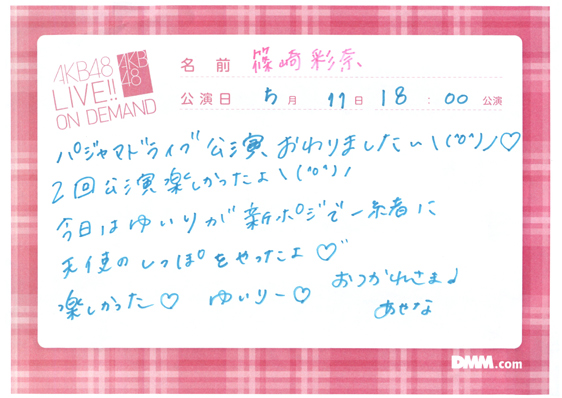 AKB48
LIVE!!
ON DEMAND
AKB
48
名前 篠崎彩奈
公演日 5月 11日 18:00 公演
パジャマドライブ公演 おわりましたぃ\(^o^)/♡
2回公演楽しかったよ\(^o^)/
今日はゆいりが新ポジで一緒に
天使のしっぽをやったよ♡
楽しかった♡ ゆいりー♡
おつかれさま♪
あやな
DMM.com